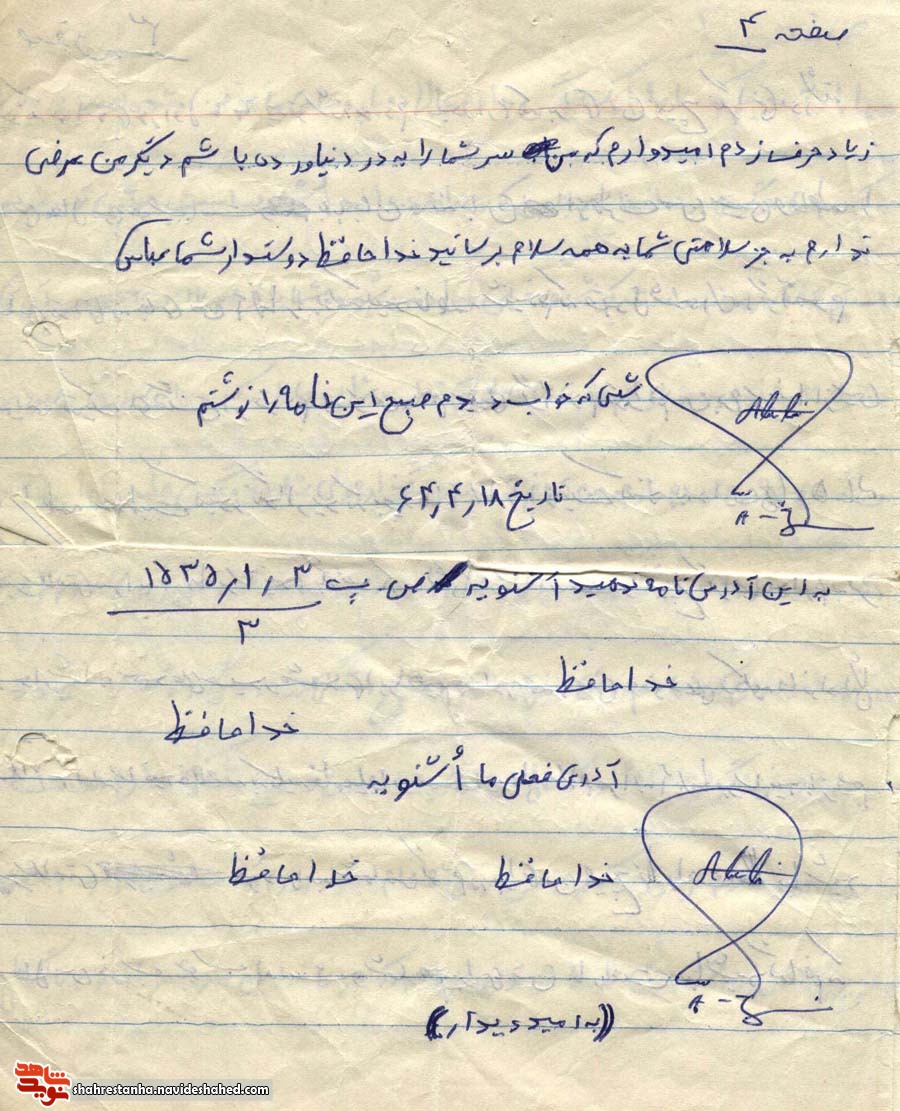 صفحه ۴
زیاد حرف زدم امیدوارم که سر شما را به درد نیاورده باشم دیگر من عرضی
ندارم به جز سلامتی شما به همه سلام برسانید خداحافظ دوستدار شما عباس
شبی که خواب دیدم صبح این نامه را نوشتم
تاریخ ۶۴٫۴٫۱۸
به این آدرس نامه ندهید اشنویه ص پ
۳
خداحافظ
خداحافظ
آدرس فعلی ما اُشنویه
خداحافظ خداحافظ
((به امید دیدار))
نوید شاهد
shahrestanha.navideshahed.com